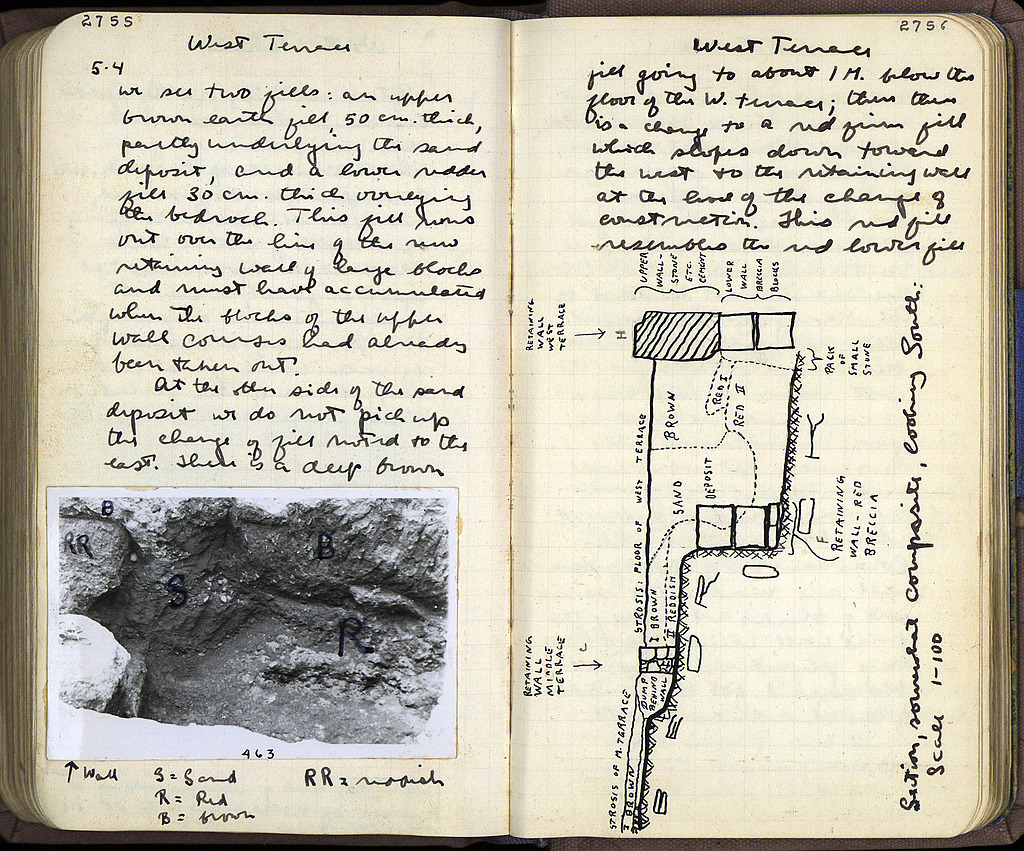 2755
West Terrace
5.4
we see two fills: an upper
brown earth fill, 50 cm. thick,
partly underlying the sand
deposit, and a lower redder
fill 30 cm. thick overlying
the bedrock. This fill runs
out over the line of the new
retaining wall of large blocks
and must have accumulated
when the blocks of the upper
wall courses had already
been taken out.
At the other side of the sand
deposit we do not pick up
the change of fill noted to the
east. There is a deep brown
B
RR
S
B
R
463
↑ Wall
S = Sand
R = Red
B = brown
RR =
2756
West Terrace
fill going to about 1 M. below the
floor of the W. terrace; then there
is a change to a red firm fill
which slopes down toward
the west to the retaining wall
at the level of the change of
construction. This red fill
resembles the red lower fill
UPPER
WALL-
STONE
ETC.
CEMENT
LOWER
WALL
BRECCIA
BLOCKS
RETAINING
WALL
WEST
TERRACE
H
PACK
OF
SMALL
STONE
RED I
RED II
BROWN
STROSIS: FLOOR OF WEST TERRACE
SAND
DEPOSIT
F
RETAINING
WALL-RED
BRECCIA
I BROWN
II REDDISH
RETAINING
WALL
MIDDLE
TERRACE
L
DUMP
BEHIND
WALL
STROSIS OF M. TERRACE
I BROWN
Section, somewhat composite, looking South:
Scale 1-100